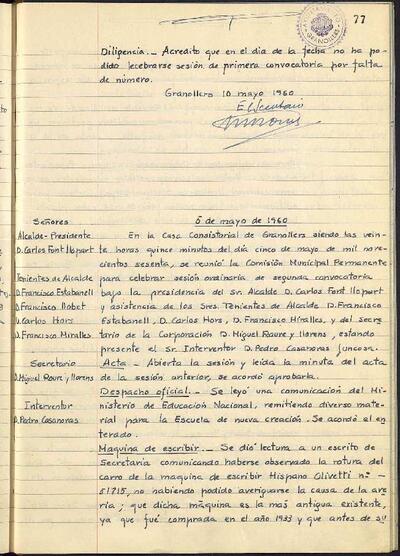 77
AYUNTAMIENTO
GRANOLLERS
Diligencia.- Acredito que en el dia de la fecha no ha po-
dido lecebrarse sesión de primera convocatoria por falta
de número.
Granollers 10 mayo 1960
El Secretario
Señores
Alcalde-Presidente
D. Carlos Font Llopart
Tenientes de Alcalde
D. Francisco Estabanell
D. Francisco Llobet
D. Carlos Hors
D. Francisco Miralles
Secretario
D. Miguel Roure y Llorens
Interventor
D. Pedro Casanovas
5 de mayo de 1960
En la Casa Consistorial de Granollers siendo las vein-
te horas quince minutos del dia cinco de mayo de mil nove-
cientos sesenta, se reunió la Comisión Municipal Permanente
para celebrar sesión ordinaria de segunda convocatoria
bajo la presidencia del Sr. Alcalde D. Carlos Font Llopart
y asistencia de los Sres. Tenientes de Alcalde D. Francisco
Estabanell, D. Carlos Hors, D. Francisco Miralles, y del secre-
tario de la Corporación D. Miguel Roure y Llorens, estando
presente el Sr. Interventor D. Pedro Casanovas Juncosa.
Acta.- Abierta la sesión y leída la minuta del acta
de la sesión anterior, se acordó aprobarla.
Despacho oficial.- Se leyó una comunicación del Mi-
nisterio de Educación Nacional, remitiendo diverso mate-
rial para la Escuela de nueva creación. Se acordó el en-
terado.
Maquina de escribir.- Se dió lectura a un escrito de
Secretaria comunicando haberse observado la rotura del
carro de la maquina de escribir Hispano Olivetti nº -
51715, no habiendo podido averiguarse la causa de la ave
ria; que dicha máquina es la mas antigua existente,
ya que fué comprada en el año 1933 y que antes de su